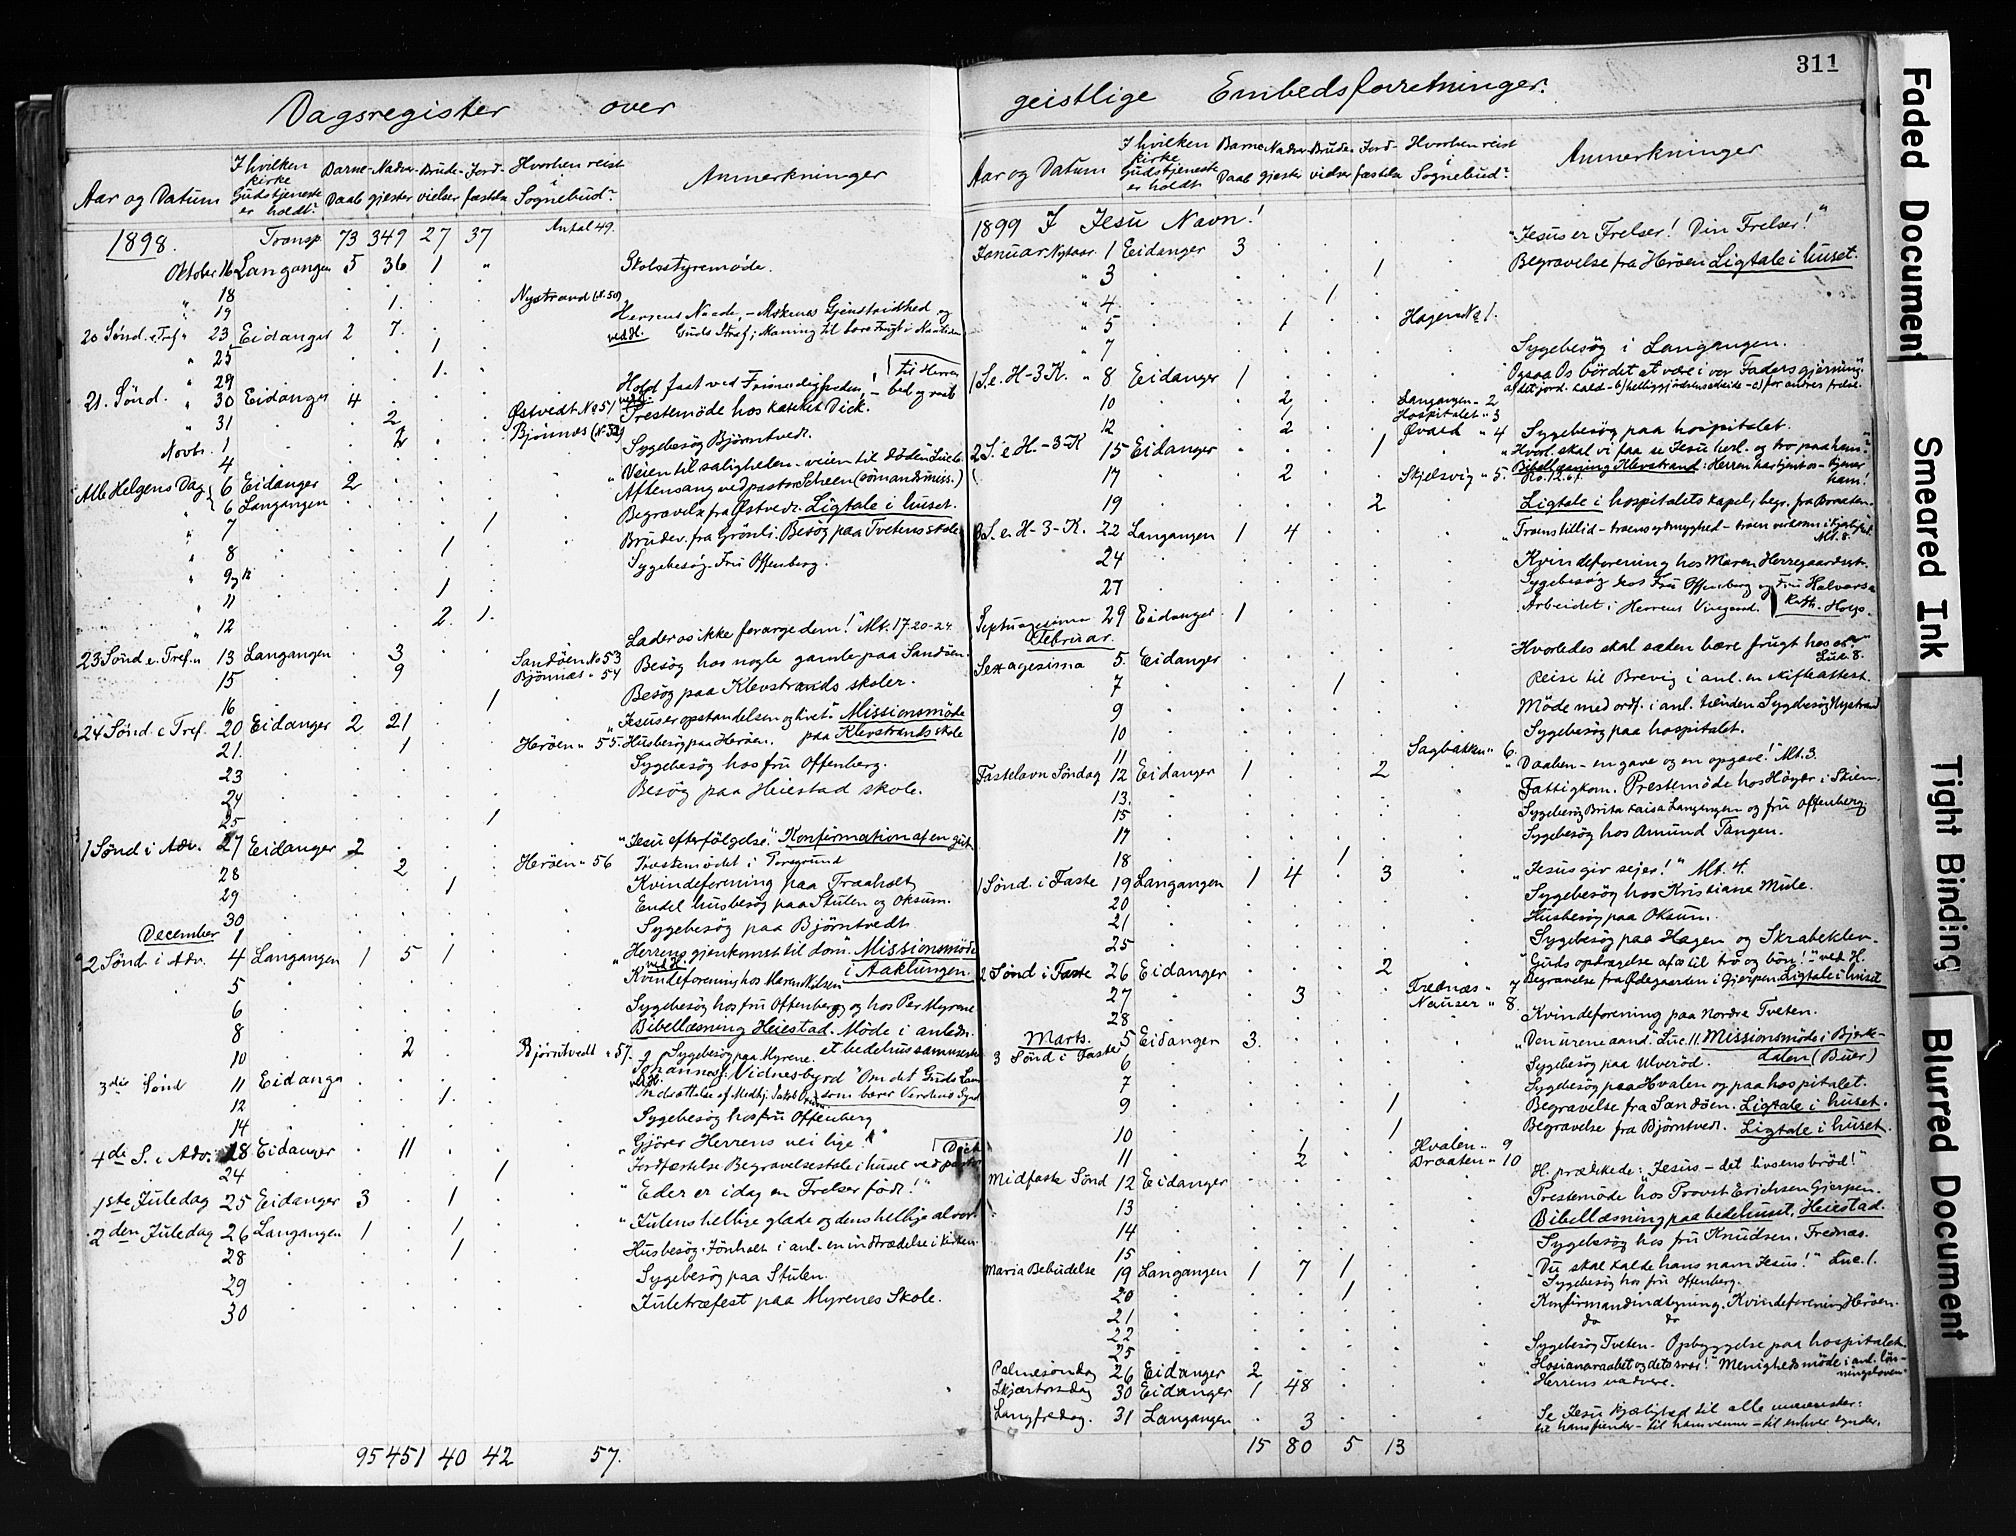 Dagsregister over
Aar og Datum
I hvilken kirke Gudstjeneste er holdt?
Barne Daab
Nadver gjester
Brude- vielser
Jord- fæstelse
Hvorhen reist i Sognebud?
Anmerkninger
1898. Transp. 73 349 27 37 Antal 49.
Oktober 16 Langangen 5 36 1 " Skolestyremøde.
" 18
" 19 1. Nystrand (N. 50)
20 Sønd. e. Tref. " 23 Eidanger 2 7.
" 25 1
" 29 1.
21. Sønd. " 30 Eidanger 4 Hold fast ved Frimodigheden,
" 31 2 Østvedt No 51 Prestemøde hos kateket Dick.
Novbr. 1 2 Bjønnæs
4 Sygebesøg Bjørntvedt.
Alle Helgens Dag 6 Eidanger 2 Veien til saligheden - veien til døden
6 Langangen Aftensang ved pastor Scheen (sømandsmiss.)
" 7 1 Begravelse fra Østvedt. Ligtale i huset.
" 8 1 Brudev. fra Grønli. Besøg paa Tvetens skole
" 9 Sygebesøg. Fru Offenberg.
" 11 1
" 12 2. 1.
23 Sønd. e. Tref. " 13 Langangen 3 Lader os ikke forarge dem! Mt. 17. 20-24
15 9 Sandøen No 53 Besøg hos nogle gamle paa Sandøen.
Bjønnæs " 54
16 1 Besøg paa Klevstrands skoler.
24 Sønd. e Tref. 20 Eidanger 2 21 "Jesus er opstandelsen og livet". Missionsmøde
21. 1 Herøen " 55. Husbesøg paa Herøen. paa Klevstrands skole
23 Sygebesøg hos fru Offenberg.
24 Besøg paa Heiestad skole.
25 1
1 Sønd. i Adv. 27 Eidanger 2 "Jesu efterfølgelse". Konfirmation af en gut
28 2 Herøen " 56 Prestemødet i Porsgrund
29 1 Kvindeforening paa Traaholt
30 Endel husbesøg paa Stulen og Oksum.
December 1 Sygebesøg paa Bjørntvedt.
2 Sønd. i Adv. 4 Langangen 1 5 1 "Herrens gjenkomst til dom". Missionsmøde
5 Kvindeforening hos Maren Nilsen i Aaklungen.
6 Sygebesøg hos fru Offenberg og hos Per Myrene
8 Bibellæsning Heiestad. Møde i anledn.
10 2 Bjørntvedt " 57. Sygebesøg paa Myrene. et bedehus sammesteds
3die Sønd 11 Eidanger Johannes's Vidnesbyrd "Om det Guds Lam
12 1. som bærer Verdens Synd
14 Sygebesøg hos fru Offenberg
4de S. i Adv. 18 Eidanger 11 "Gjører Herrens vei lige!"
24 1 Jordfæstelse Begravelsestale i huset ved pastor Dick
1ste Juledag 25 Eidanger 3 1 "Eder er idag en Frelser født!"
2den Juledag 26 Langangen 1 1 "Julens hellige glæde og dens hellige alvor."
28 1 Husbesøg. Tønholt i anl. en indtrædelse i kirken.
29 Sygebesøg paa Stulen.
30 Juletræfest paa Myrenes Skole.
95 451 40 42 57.
311
geistlige Embedsforretninger.
Aar og Datum
I hvilken kirke Gudstjeneste er holdt
Barne Daab
Nadver gjester
Brude- vielser
Jord- fæstelse
Hvorhen reist i Sognebud?
Anmerkninger
1899 I Jesu Navn!
Januar Nytaar 1 Eidanger 3 "Jesus er Frelser! Din Frelser!"
" 3 1 Begravelse fra Herøen Ligtale i huset.
" 4 1
" 5 1 Hagen No 1.
" 7 Sygebesøg i Langangen.
1 S. e. H-3 K. " 8 Eidanger 1 Ogsaa Os bør det at være i vor Faders gjerning
10 2 Langangen " 2
1 Hospitalet " 3
12 2 Øvald " 4 Sygebesøg paa hospitalet.
2 S. e H-3-K 15 Eidanger 1 "Hvorl. skal vi faa se Jesu herl. og tro paa ham?"
17 2 Skjelsvig " 5. Bibellæsning Klevstrand: Herren har tjent os - tjener ham!
19 2 Ligtale i hospitalets kapel; begr. fra Braaten.
3 S. e. H-3-K. 22 Langangen 1 4 "Troens tillid - troens ydmyghed - Mt. 8.
24 Kvindeforening hos Maren Herregaardsst.
27 Sygebesøg hos Fru Offenberg og Fru Halvorsen
Septuagesima 29 Eidanger 1 Arbeidet i Herrens Vingaard.
Februar
Sexagesima 5. Eidanger Hvorledes skal sæden bære frugt hos os? Luk. 8.
7 1 Reise til Brevig i anl. en skifteattest.
9 Møde med ordf. i anl. tienden Sygebesøg Nystrand
10 Sygebesøg paa hospitalet.
11 Sagbakken " 6.
Fastelavn Søndag 12 Eidanger 1 2 "Daaben - en gave og en opgave!" Mt. 3.
13. Fattigkom. Prestemøde hos Høyer i Skien.
15 Sygebesøg Brita Kaisa Langangen og fru Offenberg
17 Sygebesøg hos Amund Tangen.
18 1
1 Sønd. i Faste 19 Langangen 1 4 3 "Jesus giv sejer!" Mt. 4.
20 Sygebesøg hos Kristiane Mule.
21 Husbesøg paa Oksum.
25 Sygebesøg paa Hagen og Skrabeklev.
2 Sønd i Faste 26 Eidanger 2 "Guds opdragelse til tro og bøn!" ved H.
27 3 Frednæs " 7 Begravelse fra Ødegaarden i Gjerpen Ligtale i huset
Nauser " 8.
28 Kvindeforening paa Nordre Tveten.
Marts. 5 Eidanger 3. "Den urene aand. Luc. 11. Missionsmøde i Bjerk-
3 Sønd i Faste dalen (Buer)
6 Sygebesøg paa Ulverød.
7 Sygebesøg paa Hvalen og paa hospitalet.
9 1 Begravelse fra Sandøen. Ligtale i huset.
10 1 Begravelse fra Bjørntvedt. Ligtale i huset.
11 1 Hvalen " 9
2 Braaten " 10
Midfaste Sønd 12 Eidanger H. prækede: "Jesus - det livsens brød!"
13 Prestemøde hos Provst Erichsen Gjerpen.
14 Bibellæsning paa bedehuset, Heiestad.
15 Sygebesøg hos fru Knudsen, Frednæs.
Maria Bebudelse 19 Langangen 1 7 1 "Du skal kalde hans navn Jesus!" Luc. 1.
20 1 Sygebesøg hos fru Offenberg.
21 Konfirmandindtegning. Kvindeforening Herøen.
22 do do
25 Sygebesøg Tveten. Opbyggelse paa hospitalet.
Palmesøndag 26 Eidanger 2 "Hosiannaraabet og dets svar!" Menighedsmøde i anl. løn-
ningsloven
Skjærtorsdag 30 Eidanger 1 48 "Herrens nadvere.
Langfredag. 31 Langangen 3 Se Jesu kjærlighed til alle mennesker:
til hans fiender - til hans venner - til enhver synder.
15 80 5 13
Faded Document
Smeared Ink
Tight Binding
Blurred Document